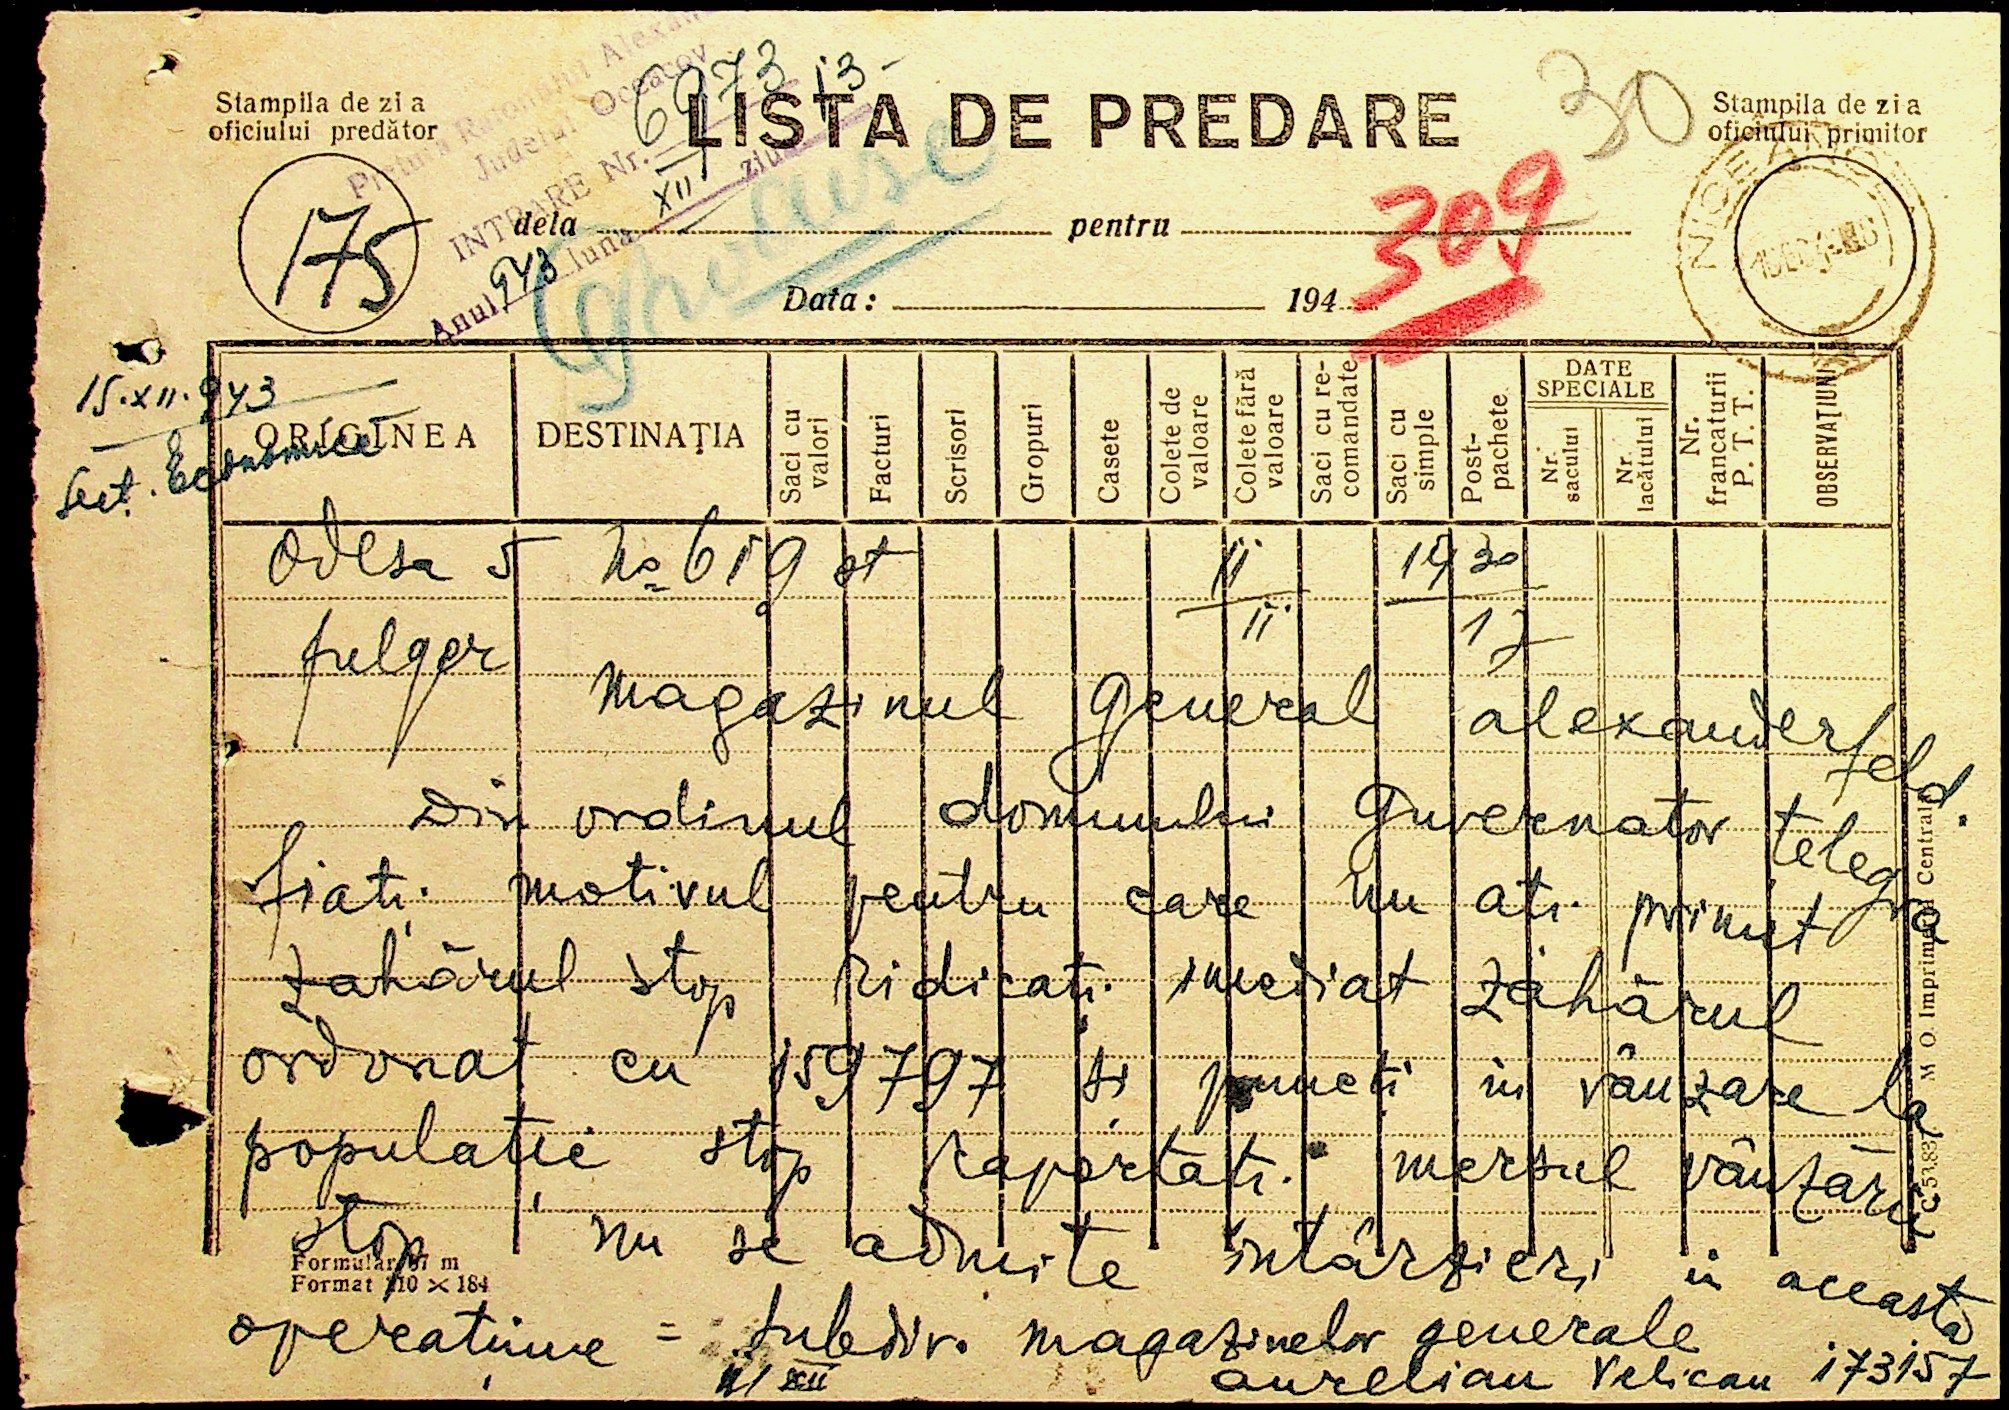 Pretura Raionului Alexan
Judetul Oceacov
INTRARE Nr. 6973
Anul 943 luna XII ziua 13
Stampila de zi a
oficiului predător
LISTA DE PREDARE
30
Stampila de zi a
oficiului primitor
175
dela pentru
309
Data : 194
15.XII.943
Sect. Economică
ORIGINEA
DESTINAȚIA
Saci cu valori
Facturi
Scrisori
Gropuri
Casete
Colete de valoare
Colete fără valoare
Saci cu recomandate
Saci cu simple
Post-pachete
DATE SPECIALE
Nr. sacului
Nr. lacătului
Nr. francaturii P. T. T.
OBSERVAȚIUNI
Odesa 5 No 619 st 11 1930
fulger 11 17
Magazinul General Alexanderfeld.
Din ordinul domnului Guvernator telegra
fiați motivul pentru care nu ați primit
zahărul stop Ridicați imediat zahărul
ordonat cu 159797 și puneți in vânzare la
populație stop Raportați mersul vânzării
stop nu se admite intârzieri in aceasta
operațiune = Subdiv. Magazinelor generale
11/XII Aurelian Velican 173157
Formular 67 m
Format 210 × 184
M. O. Imprimeria Centrală C 53.837